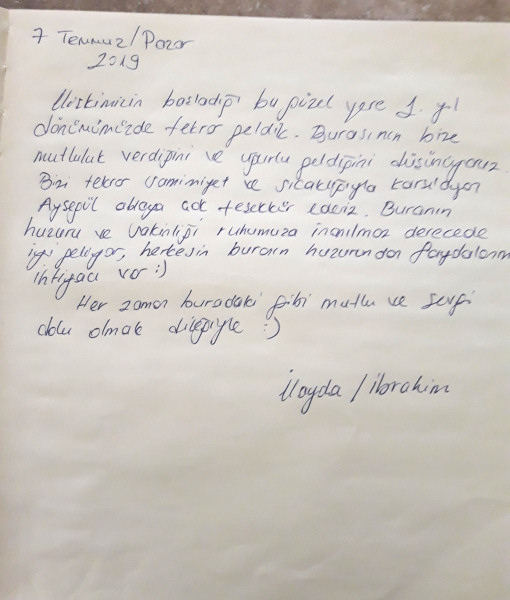 7 Temmuz/Pazar
2019
İlişkimizin başladığı bu güzel yere 1. yıl
dönümümüzde tekrar geldik. Burasının bize
mutluluk verdiğini ve uğurlu geldiğini düşünüyoruz.
Bizi tekrar samimiyet ve sıcaklığıyla karşılayan
Ayşegül ablaya çok teşekkür ederiz. Buranın
huzuru ve sakinliği ruhumuza inanılmaz derecede
iyi geliyor, herkesin buranın huzurundan faydalanma
ihtiyacı var :)
Her zaman buradaki gibi mutlu ve sevgi
dolu olmak dileğiyle :)
İlayda / İbrahim